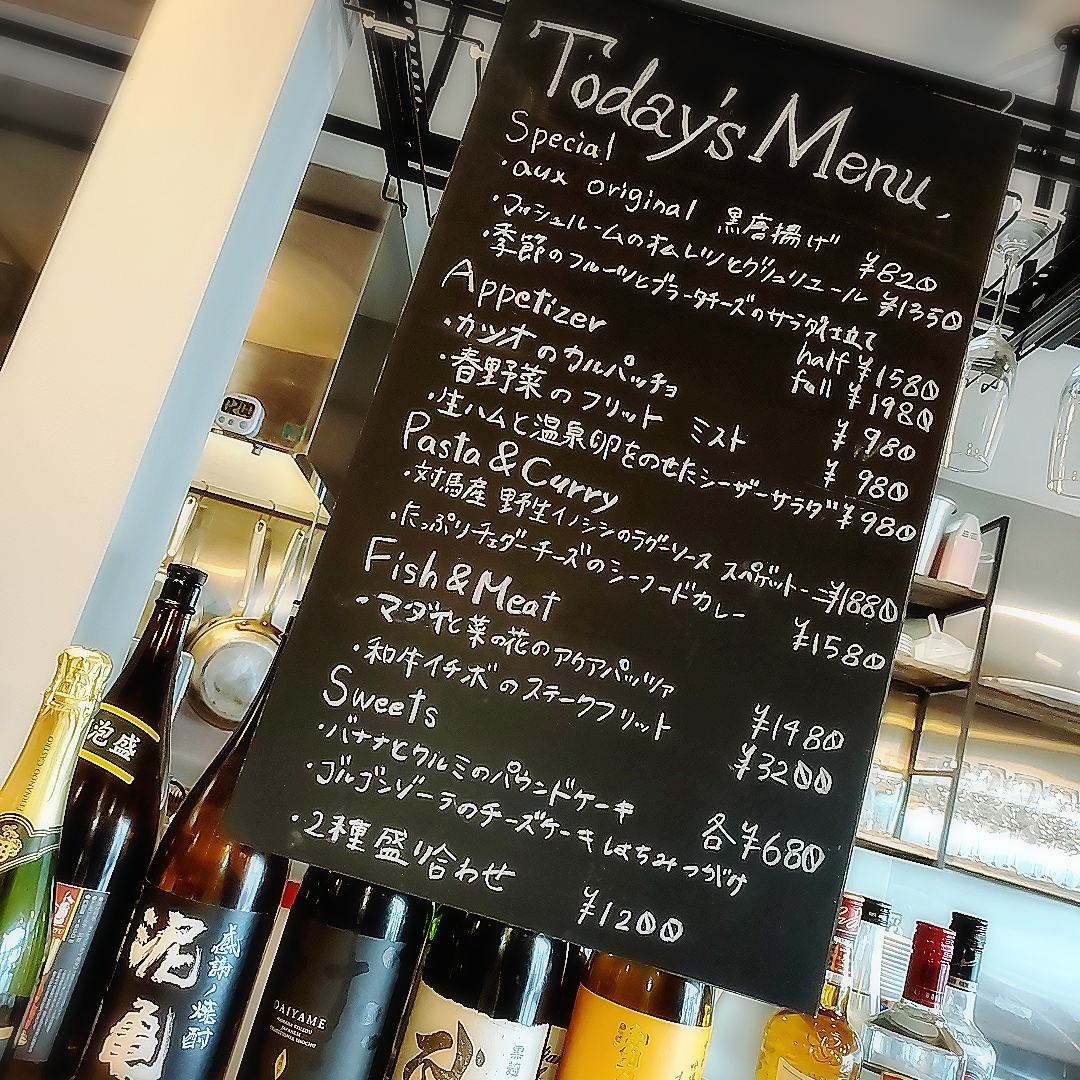 Today's Menu
Special
・aux original 黒唐揚げ ¥820
・マッシュルームのオムレツとグリュリエール ¥1350
・季節のフルーツとブラータチーズのサラダ仕立て
half ¥1580
full ¥1980
Appetizer
・カツオのカルパッチョ ¥980
・春野菜のフリット ミスト ¥980
・生ハムと温泉卵をのせたシーザーサラダ ¥980
Pasta & Curry
・対馬産 野生イノシシのラグーソース スパゲットーニ ¥1880
・たっぷりチェダーチーズのシーフードカレー ¥1580
Fish & Meat
・マダイと菜の花のアクアパッツァ ¥1480
・和牛イチボのステークフリット ¥3200
Sweets
・バナナとクルミのパウンドケーキ
・ゴルゴンゾーラのチーズケーキ はちみつがけ
各¥680
・2種盛り合わせ ¥1200
FERNANDO CASTRO
泡盛
感謝ノ焼酎
泥亀
DAIYAME